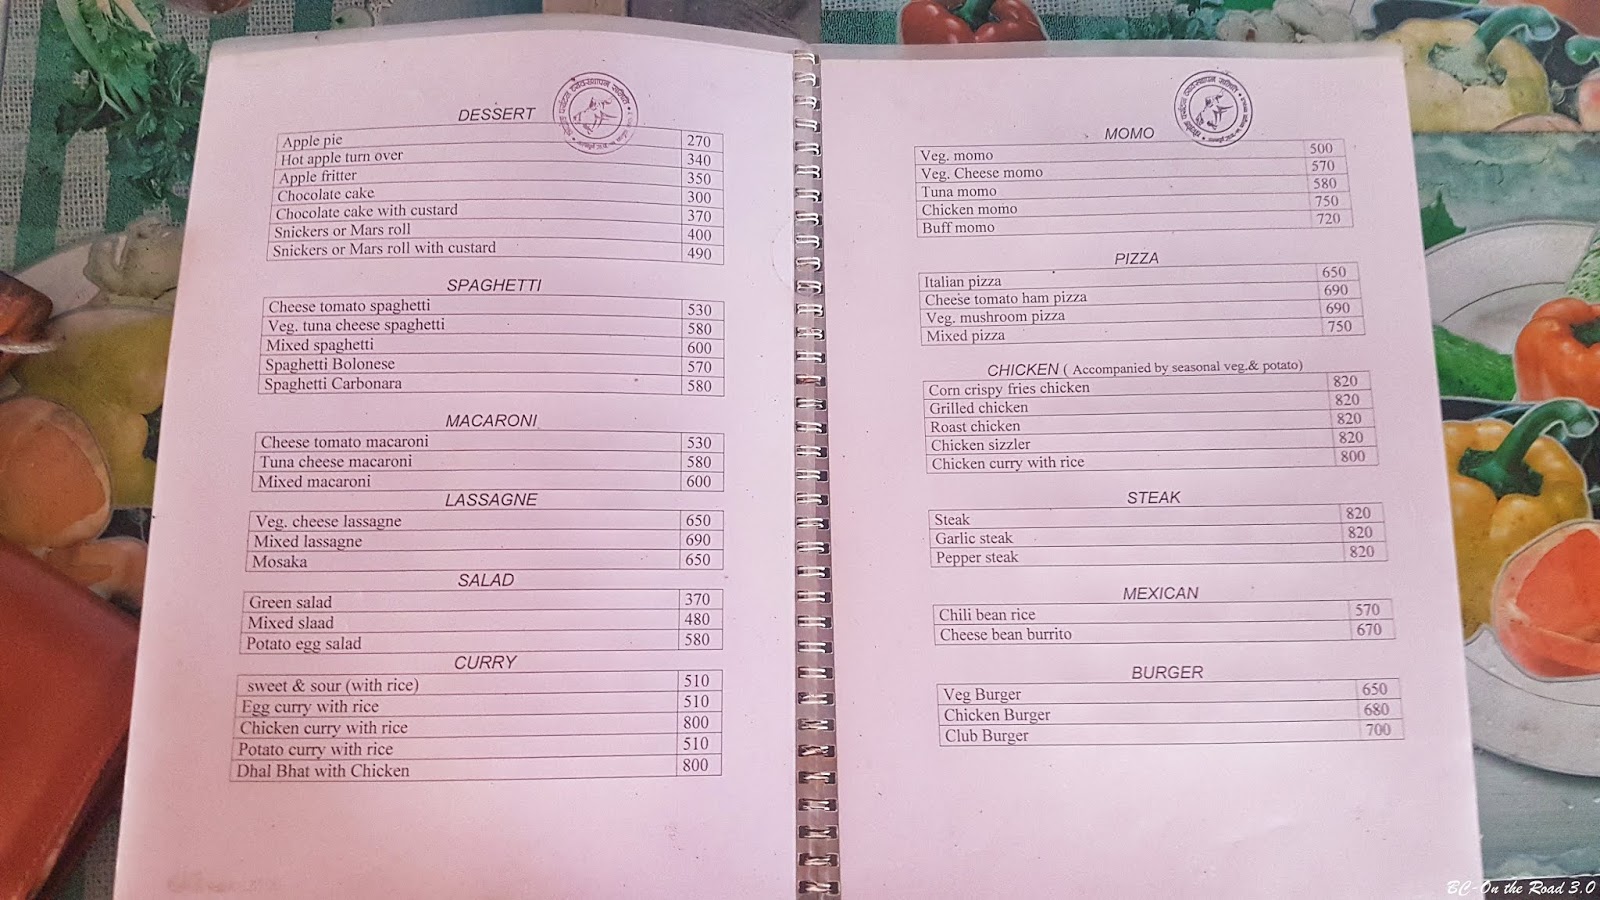 DESSERT
Apple pie 270
Hot apple turn over 340
Apple fritter 350
Chocolate cake 300
Chocolate cake with custard 370
Snickers or Mars roll 400
Snickers or Mars roll with custard 490
SPAGHETTI
Cheese tomato spaghetti 530
Veg. tuna cheese spaghetti 580
Mixed spaghetti 600
Spaghetti Bolonese 570
Spaghetti Carbonara 580
MACARONI
Cheese tomato macaroni 530
Tuna cheese macaroni 580
Mixed macaroni 600
LASSAGNE
Veg. cheese lassagne 650
Mixed lassagne 690
Mosaka 650
SALAD
Green salad 370
Mixed slaad 480
Potato egg salad 580
CURRY
sweet & sour (with rice) 510
Egg curry with rice 510
Chicken curry with rice 800
Potato curry with rice 510
Dhal Bhat with Chicken 800
MOMO
Veg. momo 500
Veg. Cheese momo 570
Tuna momo 580
Chicken momo 750
Buff momo 720
PIZZA
Italian pizza 650
Cheese tomato ham pizza 690
Veg. mushroom pizza 690
Mixed pizza 750
CHICKEN ( Accompanied by seasonal veg.& potato)
Corn crispy fries chicken 820
Grilled chicken 820
Roast chicken 820
Chicken sizzler 820
Chicken curry with rice 800
STEAK
Steak 820
Garlic steak 820
Pepper steak 820
MEXICAN
Chili bean rice 570
Cheese bean burrito 670
BURGER
Veg Burger 650
Chicken Burger 680
Club Burger 700
BC-On the Road 3.0